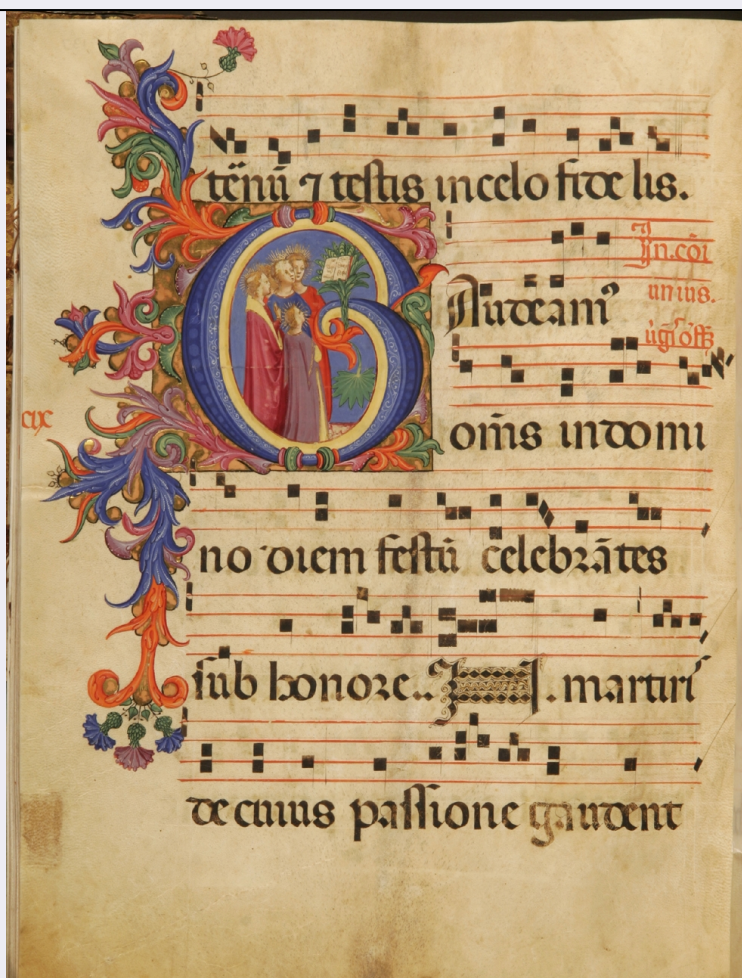 tēnū ⁊ testis in celo fide lis.
In.cōi
unius.
Gaudeamꝰ
om̄s in domi
cix
no diem festū celebrātes
sub honore.. N. martiriˢ
de cuius passione gaudent